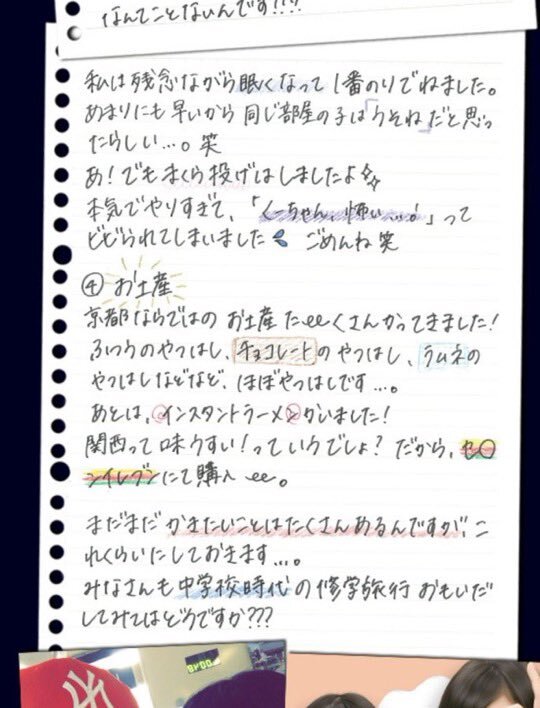 なんてことないんです!!!
私は残念ながら眠くなって1番のりでねました。
あまりにも早いから同じ部屋の子は「うそね」だと思っ
たらしい…。笑
あ!でもまくら投げはしましたよ
本気でやりすぎて、「くーちゃん、怖い…!」って
ビビられてしまいました ごめんね笑
④ お土産
京都ならではの お土産 たぁぁくさんかってきました!
ふつうのやつはし、チョコレートのやつはし、ラムネの
やつはしなどなど、ほぼやつはしです…。
あとは、インスタントラーメンかいました!
関西って味うすい!っていうでしょ?だから、セ○
ンイレブンにて購入
まだまだかきたいことはたくさんあるんですが、こ
れくらいにしておきます…。
みなさんも中学校時代の修学旅行おもいだ
してみてはどうですか???